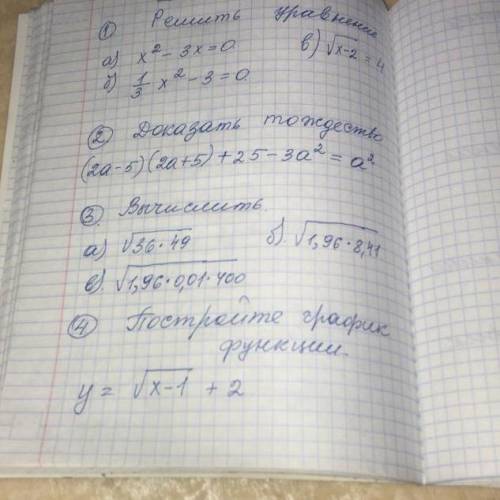 ① Решить уравнение
а) x² - 3x = 0 в) √x-2 = 4
б) 1/3 x² - 3 = 0
② Доказать тождество
(2a-5)(2a+5)+25-3a² = a²
③ Вычислить
а) √36·49 б). √1,96·8,41
в). √1,96·0,01·400
④ Постройте график
функции.
y = √x-1 + 2